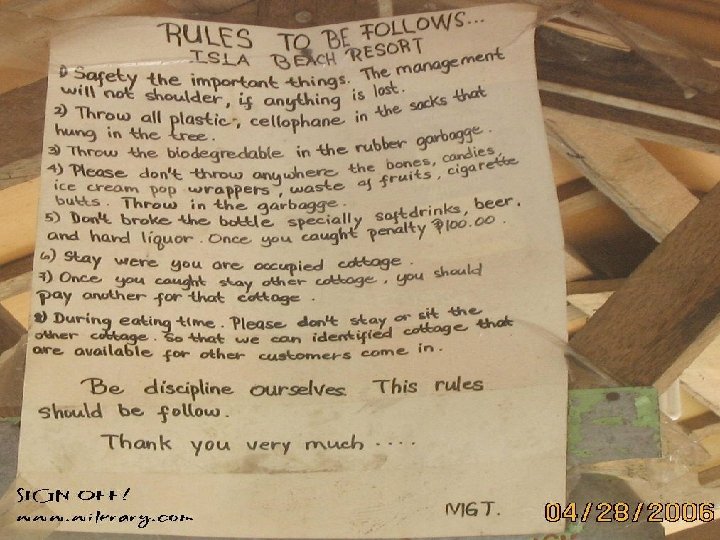 RULES TO BE FOLLOWS...
ISLA BEACH RESORT
1) Safety the important things. The management
will not shoulder, if anything is lost.
2) Throw all plastic, cellophane in the sacks that
hung in the tree.
3) Throw the biodegredable in the rubber garbagge.
4) Please don't throw anywhere the bones, candies,
ice cream pop wrappers, waste of fruits, cigarette
butts. Throw in the garbagge.
5) Don't broke the bottle specially softdrinks, beer,
and hard liquor. Once you caught penalty ₱100.00.
6) Stay were you are occupied cottage.
7) Once you caught stay other cottage, you should
pay another for that cottage.
8) During eating time. Please don't stay or sit the
other cottage. So that we can identified cottage that
are available for other customers come in.
Be discipline ourselves. This rules
should be follow.
Thank you very much ....
MGT.
SIGN OFF!
www.milerary.com
04/28/2006